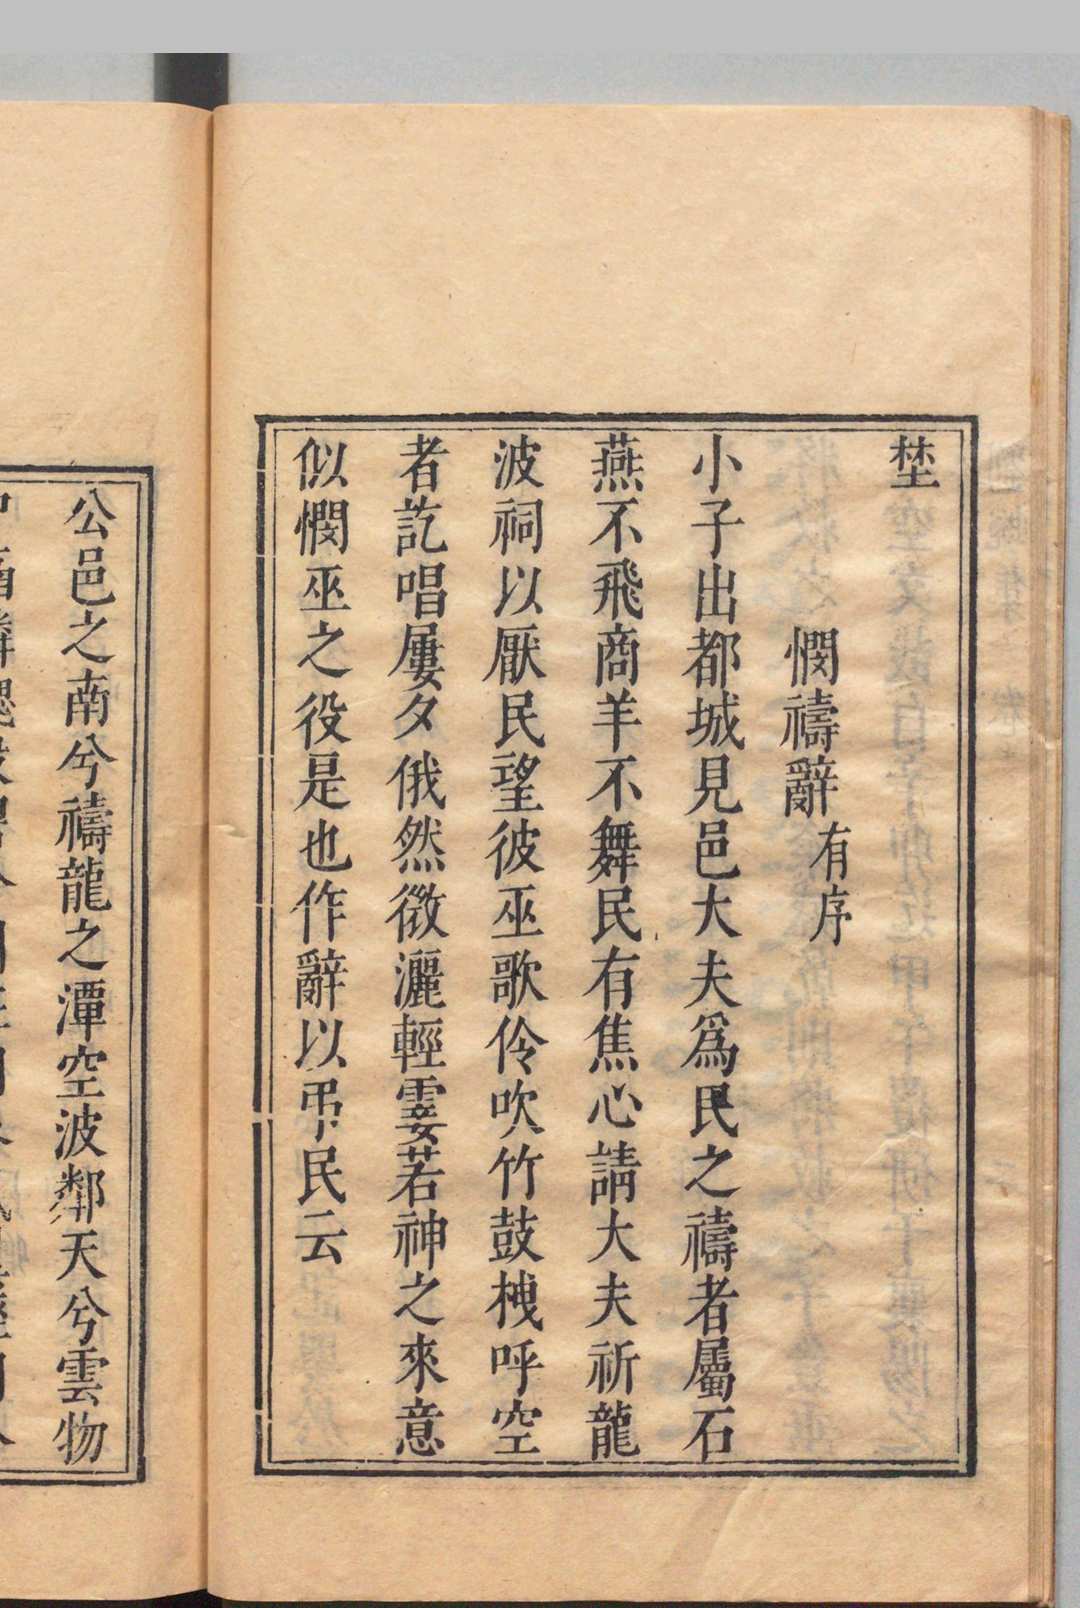 埜
憫禱辭有序
小子出都城見邑大夫爲民之禱者屬石
燕不飛商羊不舞民有焦心請大夫祈龍
波祠以厭民望彼巫歌伶吹竹鼓栧呼空
者訖唱屢夕俄然徵灑輕霎若神之來意
似憫巫之役是也作辭以弔民云
公邑之南兮禱龍之潭空波鄰天兮雲物